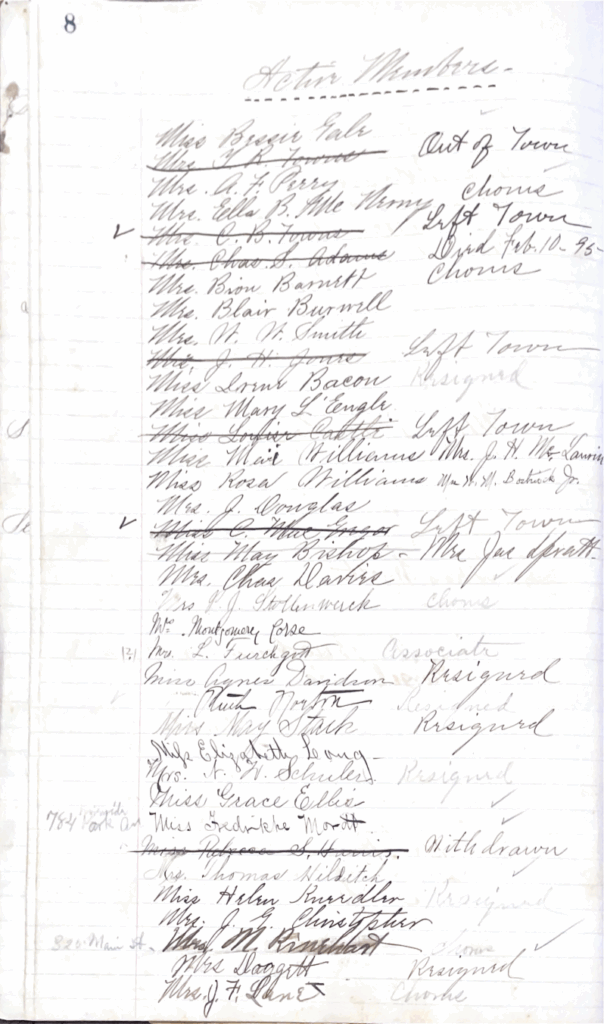 8
Active Members -
Miss Bessie Gale
Mrs. T. D. Towns Out of Town
Mrs. A. F. Perry
Mrs. Ella B. Mc Henry Chorus
Mrs. C. B. Towns Left Town
Mrs. Chas. S. Adams Died Feb. 10 - 95 -
Mrs. Bion Barnett Chorus
Mrs. Blair Burwell
Mrs. W. W. Smith
Mrs. J. H. Jones Left Town
Miss Irene Bacon Resigned
Miss Mary L'Engle
Miss Louise Left Town
Miss Williams Mrs. J. H.
Miss Rosa Williams W. M. Bostwick Jr.
Mrs. J. Douglas
Miss C. Mac Gregor Left Town
Miss May Bishop - Mrs Jas Spratt.
Mrs. Chas Davies
Mrs J. Stollenwerck Chorus
Montgomery Corse
Mrs. L. Furchgott Associate
Miss Agnes Davidson Resigned
Ruth Norton Resigned
May Stark Resigned
Miss Elizabeth Long
Mrs. N. W. Schuler Resigned
Miss Grace Ellis
784 Park Av
Miss Fredrikke
Miss Rebecca S. Harris. Withdrawn
Mrs. Thomas Hilditch
Miss Helen Knerdler Resigned
Mrs. J. G. Christopher
Main St. Mrs M. Rinehart Chorus
Mrs Daggett Resigned
Mrs. J. F. Lane Chorus